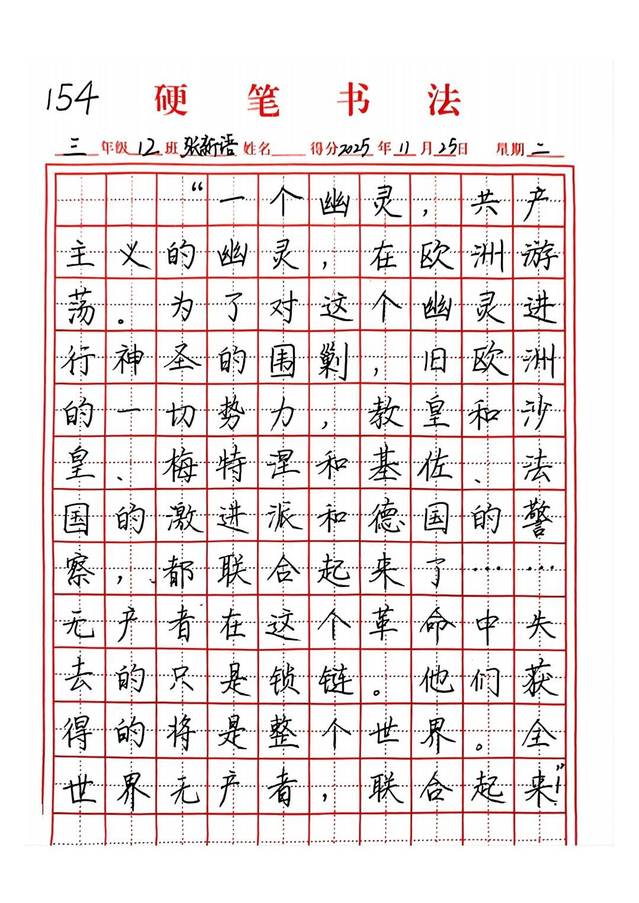 154 硬笔书法
三年级12班 张新语 姓名 得分 2025年11月25日 星期二
“一个幽灵，共产
主义的幽灵，在欧洲游
荡。为了对这个幽灵进
行神圣的围剿，旧欧洲
的一切势力，教皇和沙
皇、梅特涅和基佐、法
国的激进派和德国的警
察，都联合起来了……
无产者在这个革命中失
去的只是锁链。他们获
得的将是整个世界。全
世界无产者，联合起来！”